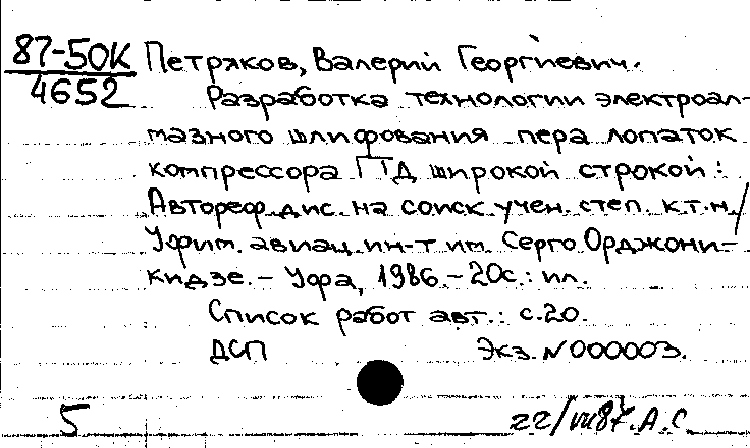 87-50К
4652
Петряков, Валерий Георгиевич.
Разработка технологии электроал-
мазного шлифования пера лопаток
компрессора ГТД широкой строкой:
Автореф. дис. на соиск. учен. степ. к.т.н./
Уфим. авиац. ин-т им. Серго Орджони-
кидзе. - Уфа, 1986. - 20с.: ил.
Список работ авт.: с.20.
ДСП Экз. N 000003.
5 22/VII 87. А.С.